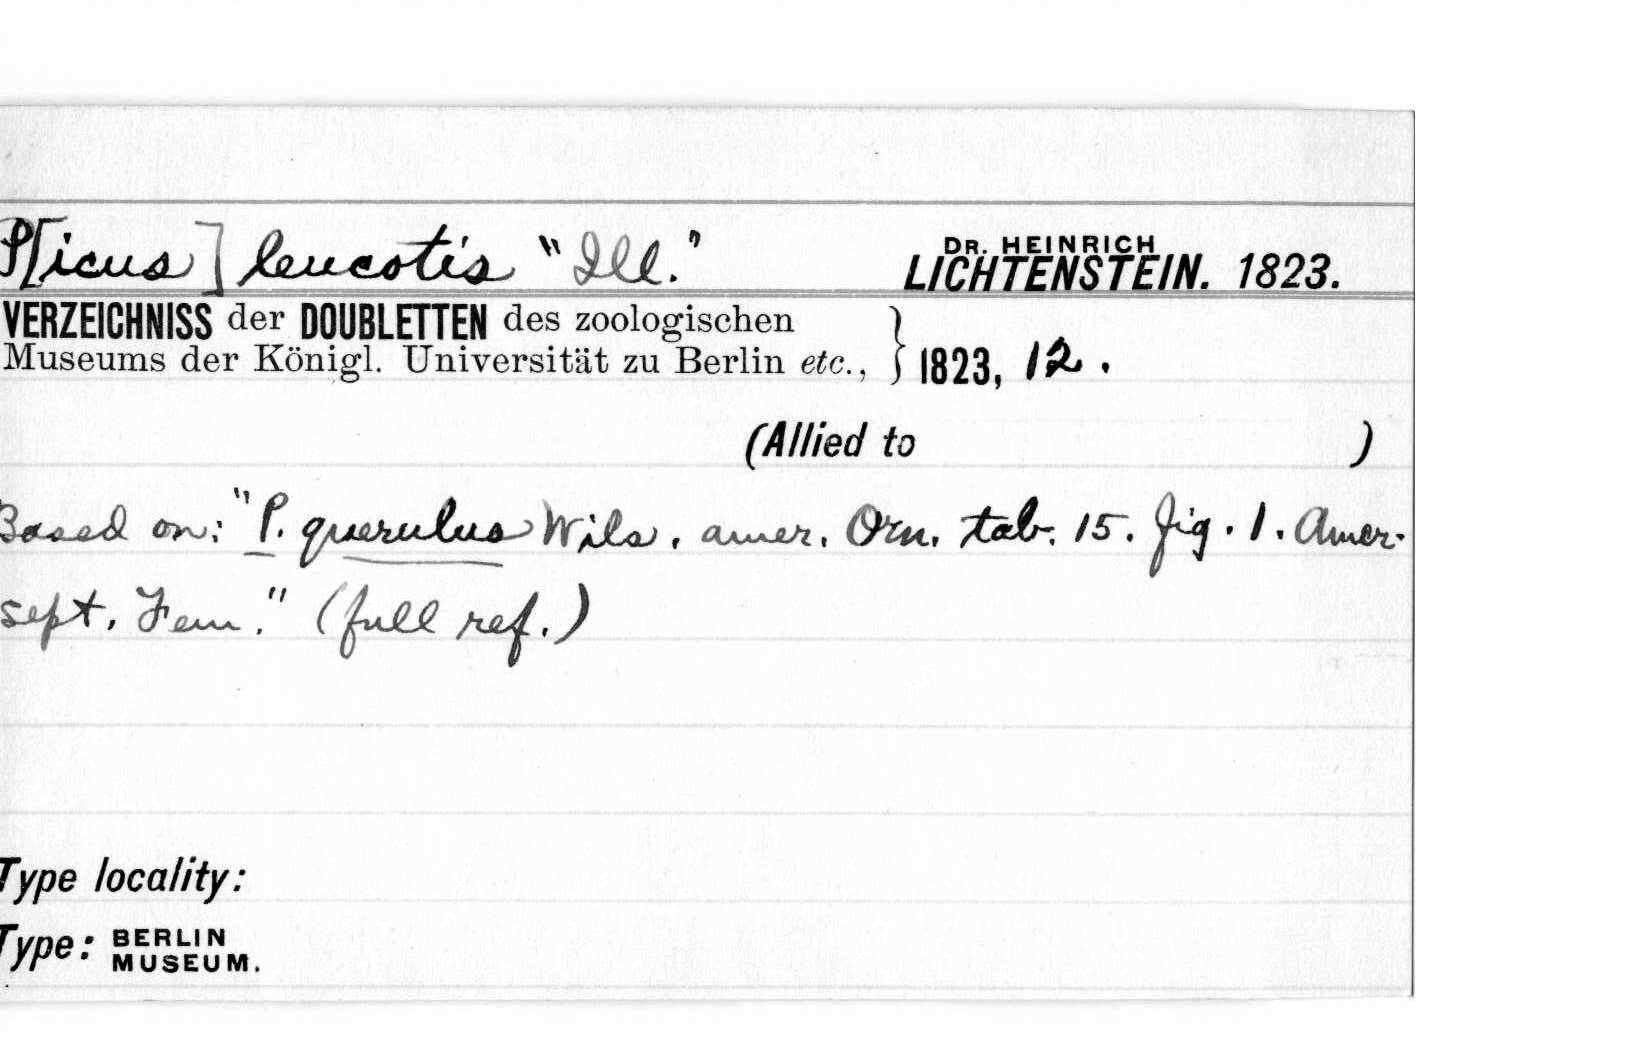 P[icus] leucotis "Ill." DR. HEINRICH LICHTENSTEIN. 1823.
VERZEICHNISS der DOUBLETTEN des zoologischen
Museums der Königl. Universität zu Berlin etc., } 1823, 12.
(Allied to )
Based on: "P. querulus Wils. amer. Orn. tab. 15. fig. 1. Amer.
sept. Fem." (full ref.)
Type locality:
Type: BERLIN MUSEUM.